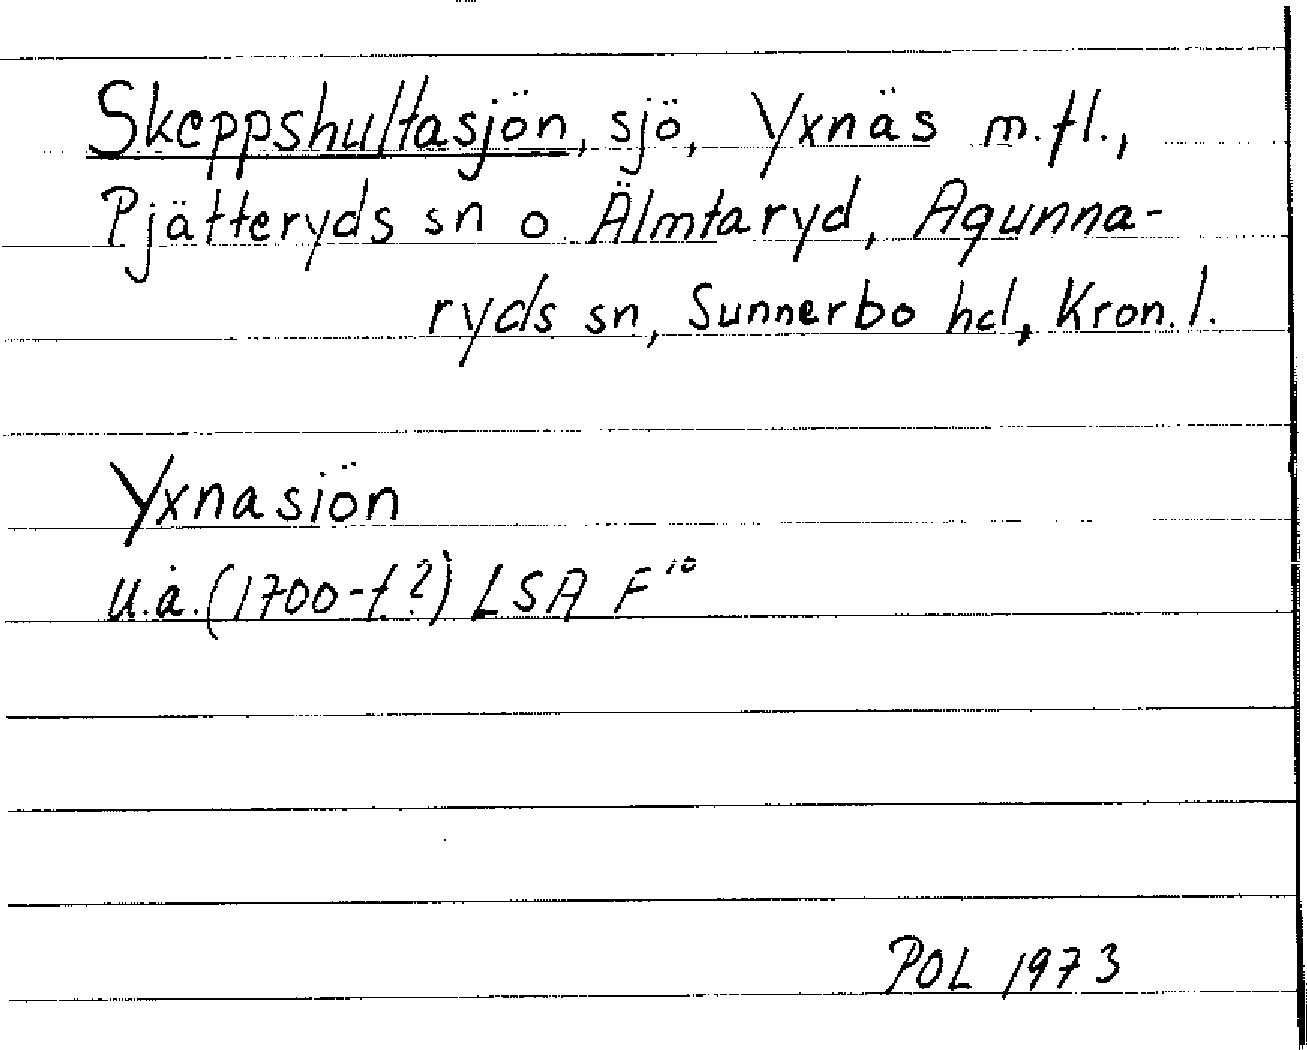 Skeppshultasjön, sjö, Yxnäs m.fl.,
Pjätteryds sn o. Älmtaryd, Agunna-
ryds sn, Sunnerbo hd, Kron. l.
Yxnasiön
u.å. (1700-t?) LSA F¹⁰
POL 1973